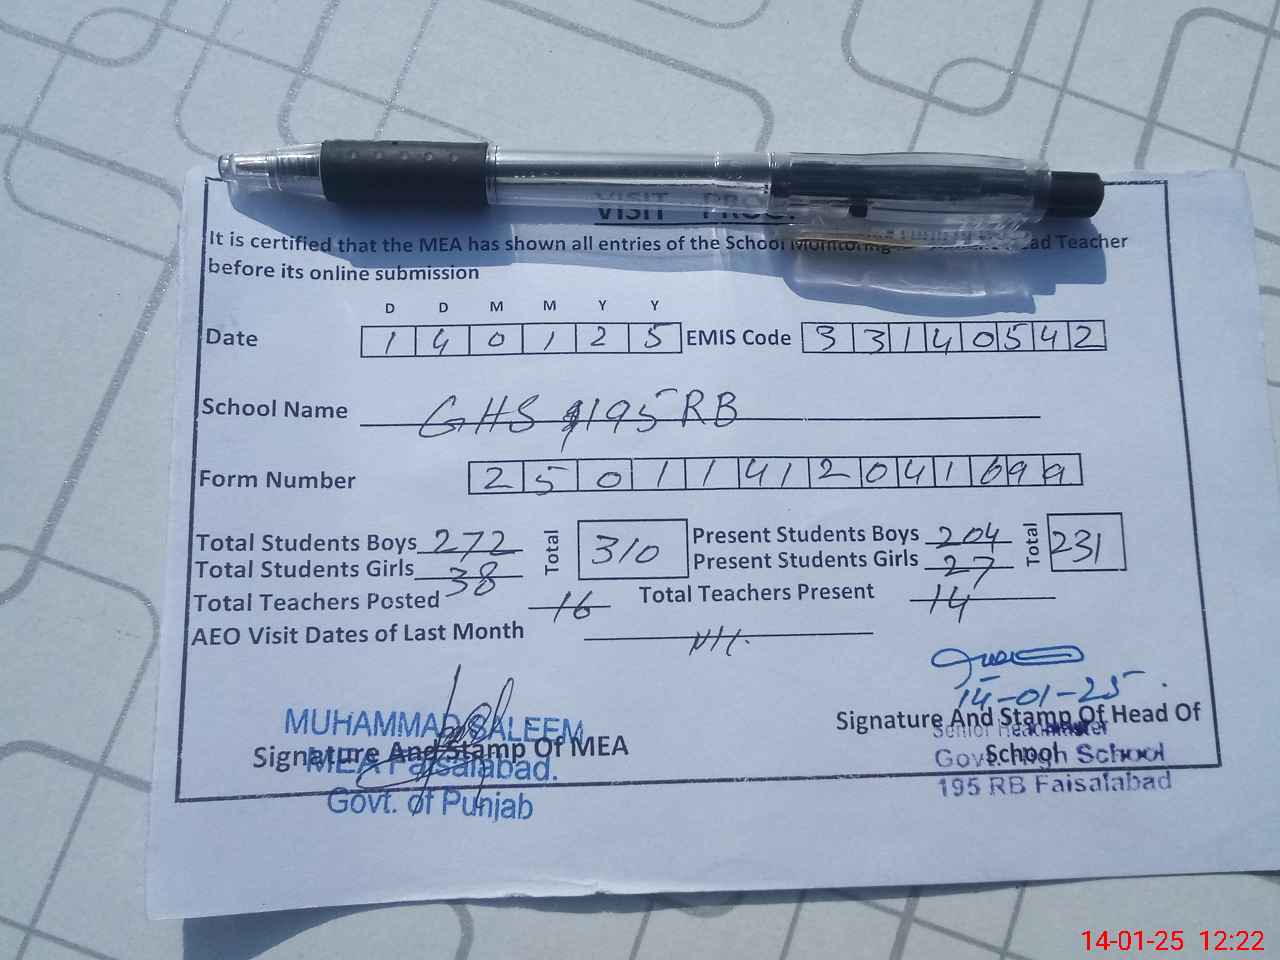 VISIT PROO
It is certified that the MEA has shown all entries of the School Monitoring Teacher
before its online submission
D D M M Y Y
Date 1 4 0 1 2 5 EMIS Code 3 3 1 4 0 5 4 2
School Name GHS 195 RB
Form Number 2 5 0 1 1 4 1 2 0 4 1 6 9 9
Total Students Boys 272 Total 310 Present Students Boys 204 Total 231
Total Students Girls 38 Present Students Girls 27
Total Teachers Posted 16 Total Teachers Present 14
AEO Visit Dates of Last Month
14-01-25
MUHAMMAD SALEEM
Signature And Stamp Of MEA
MEA Faisalabad.
Govt. of Punjab
Signature And Stamp Of Head Of
School
Senior Headmaster
Govt. High School
195 RB Faisalabad
14-01-25 12:22